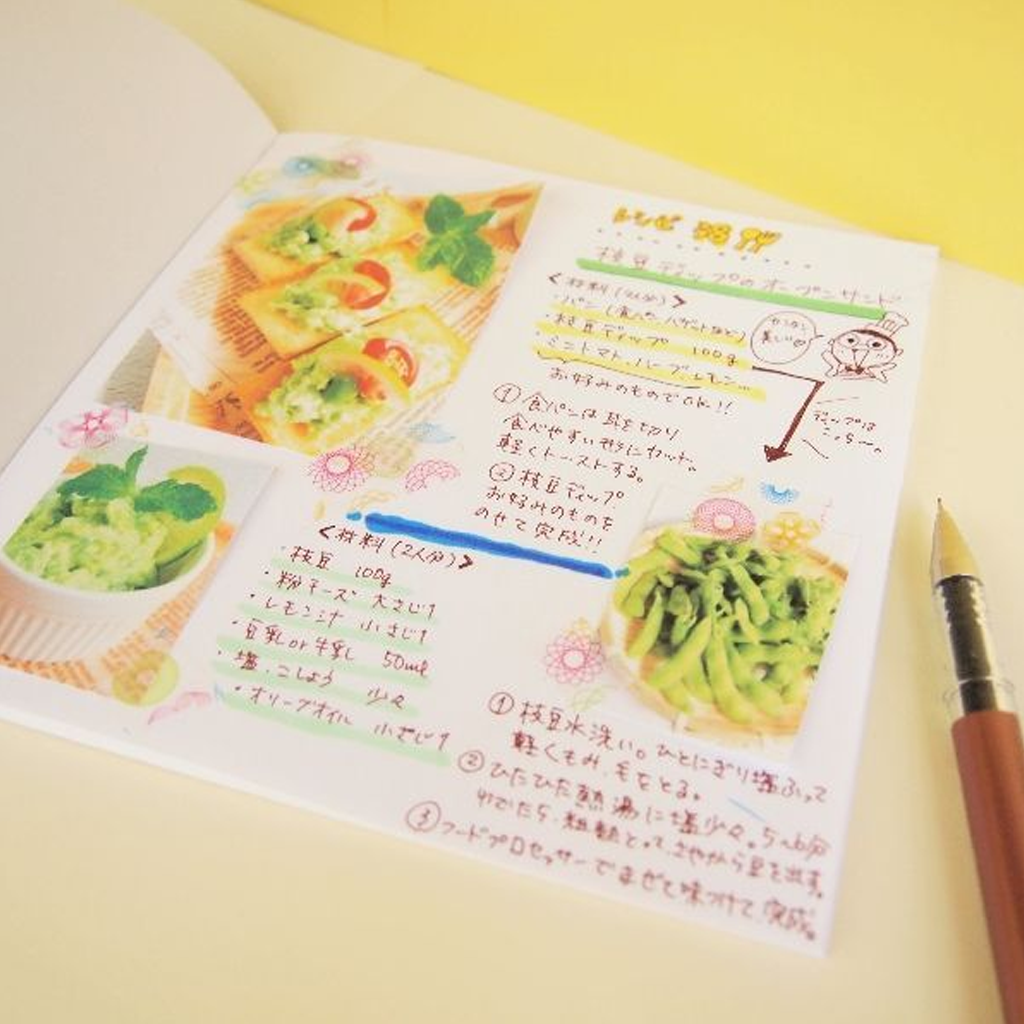 レシピ
枝豆ディップのオープンサンド
<材料(2人分)>
・パン(食パン、バゲットなど)
・枝豆ディップ 100g
・ミニトマト、ハーブ、レモン…
お好みのものでOK!!
カンタン
美しい
ディップは
こちら〜。
①食パンは耳を切り
食べやすい形にカット。
軽くトーストする。
②枝豆ディップ
お好みのものを
のせて完成!!
<材料(2人分)>
・枝豆 100g
・粉チーズ 大さじ1
・レモン汁 小さじ1
・豆乳or牛乳 50ml
・塩、こしょう 少々
・オリーブオイル 小さじ1
①枝豆水洗い。ひとにぎり塩ふって
軽くもみ、毛をとる。
②ひたひた熱湯に塩少々。5〜6分
ゆでたら、粗熱とって、さやから豆を出す。
③フードプロセッサーでまぜて味つけて、完成。